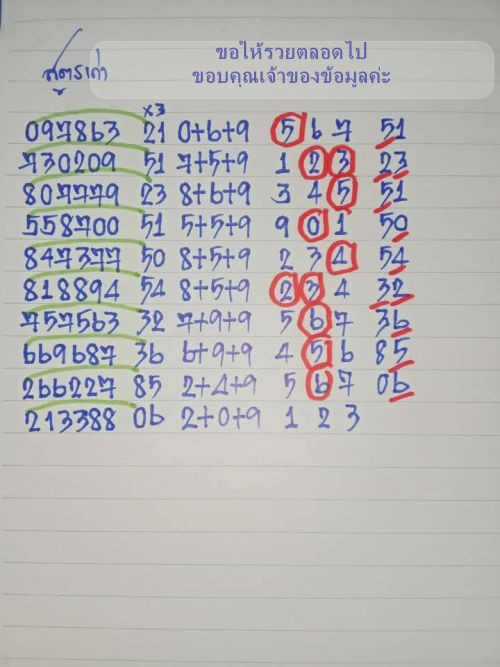 ขอให้รวยตลอดไป
ขอบคุณเจ้าของข้อมูลค่ะ
สูตรเก่า
x3
097863 21 0+6+9 5 6 7 51
730209 51 7+5+9 1 2 3 23
807779 23 8+6+9 3 4 5 51
558700 51 5+5+9 9 0 1 50
847377 50 8+5+9 2 3 4 54
818894 54 8+5+9 2 3 4 32
757563 32 7+9+9 5 6 7 36
669687 36 6+9+9 4 5 6 85
266227 85 2+4+9 5 6 7 06
213388 06 2+0+9 1 2 3